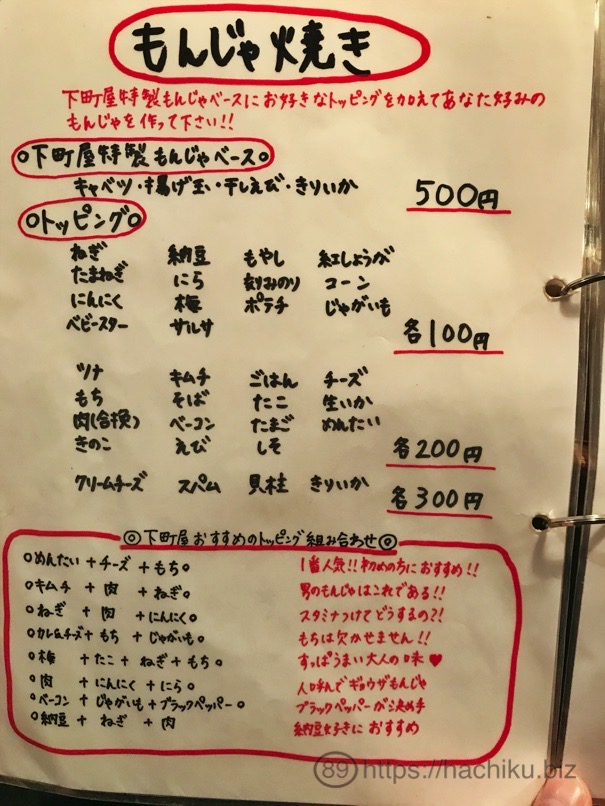 もんじゃ焼き
下町屋特製もんじゃベースにお好きなトッピングを加えてあなた好みの
もんじゃを作って下さい!!
○下町屋特製もんじゃベース○
キャベツ・揚げ玉・干しえび・きりいか 500円
○トッピング○
ねぎ 納豆 もやし 紅しょうが
たまねぎ にら 刻みのり コーン
にんにく 梅 ポテチ じゃがいも
ベビースター サルサ
各100円
ツナ キムチ ごはん チーズ
もち そば たこ 生いか
肉(合挽) ベーコン たまご めんたい
きのこ えび しそ 各200円
クリームチーズ スパム 貝柱 きりいか 各300円
◎下町屋おすすめのトッピング組み合わせ◎
○めんたい+チーズ+もち○ 1番人気!!初めての方におすすめ!!
○キムチ+肉+ねぎ○ 男のもんじゃはこれである!!
○ねぎ+肉+にんにく○ スタミナつけてどうするの?!
○カレー&チーズ+もち+じゃがいも○ もちは欠かせません!!
○梅+たこ+ねぎ+もち○ すっぱうまい大人の味♥
○肉+にんにく+にら○ 人呼んでギョウザもんじゃ
○ベーコン+じゃがいも+ブラックペッパー○ ブラックペッパーが決め手
○納豆+ねぎ+肉 納豆好きにおすすめ
89 https://hachiku.biz